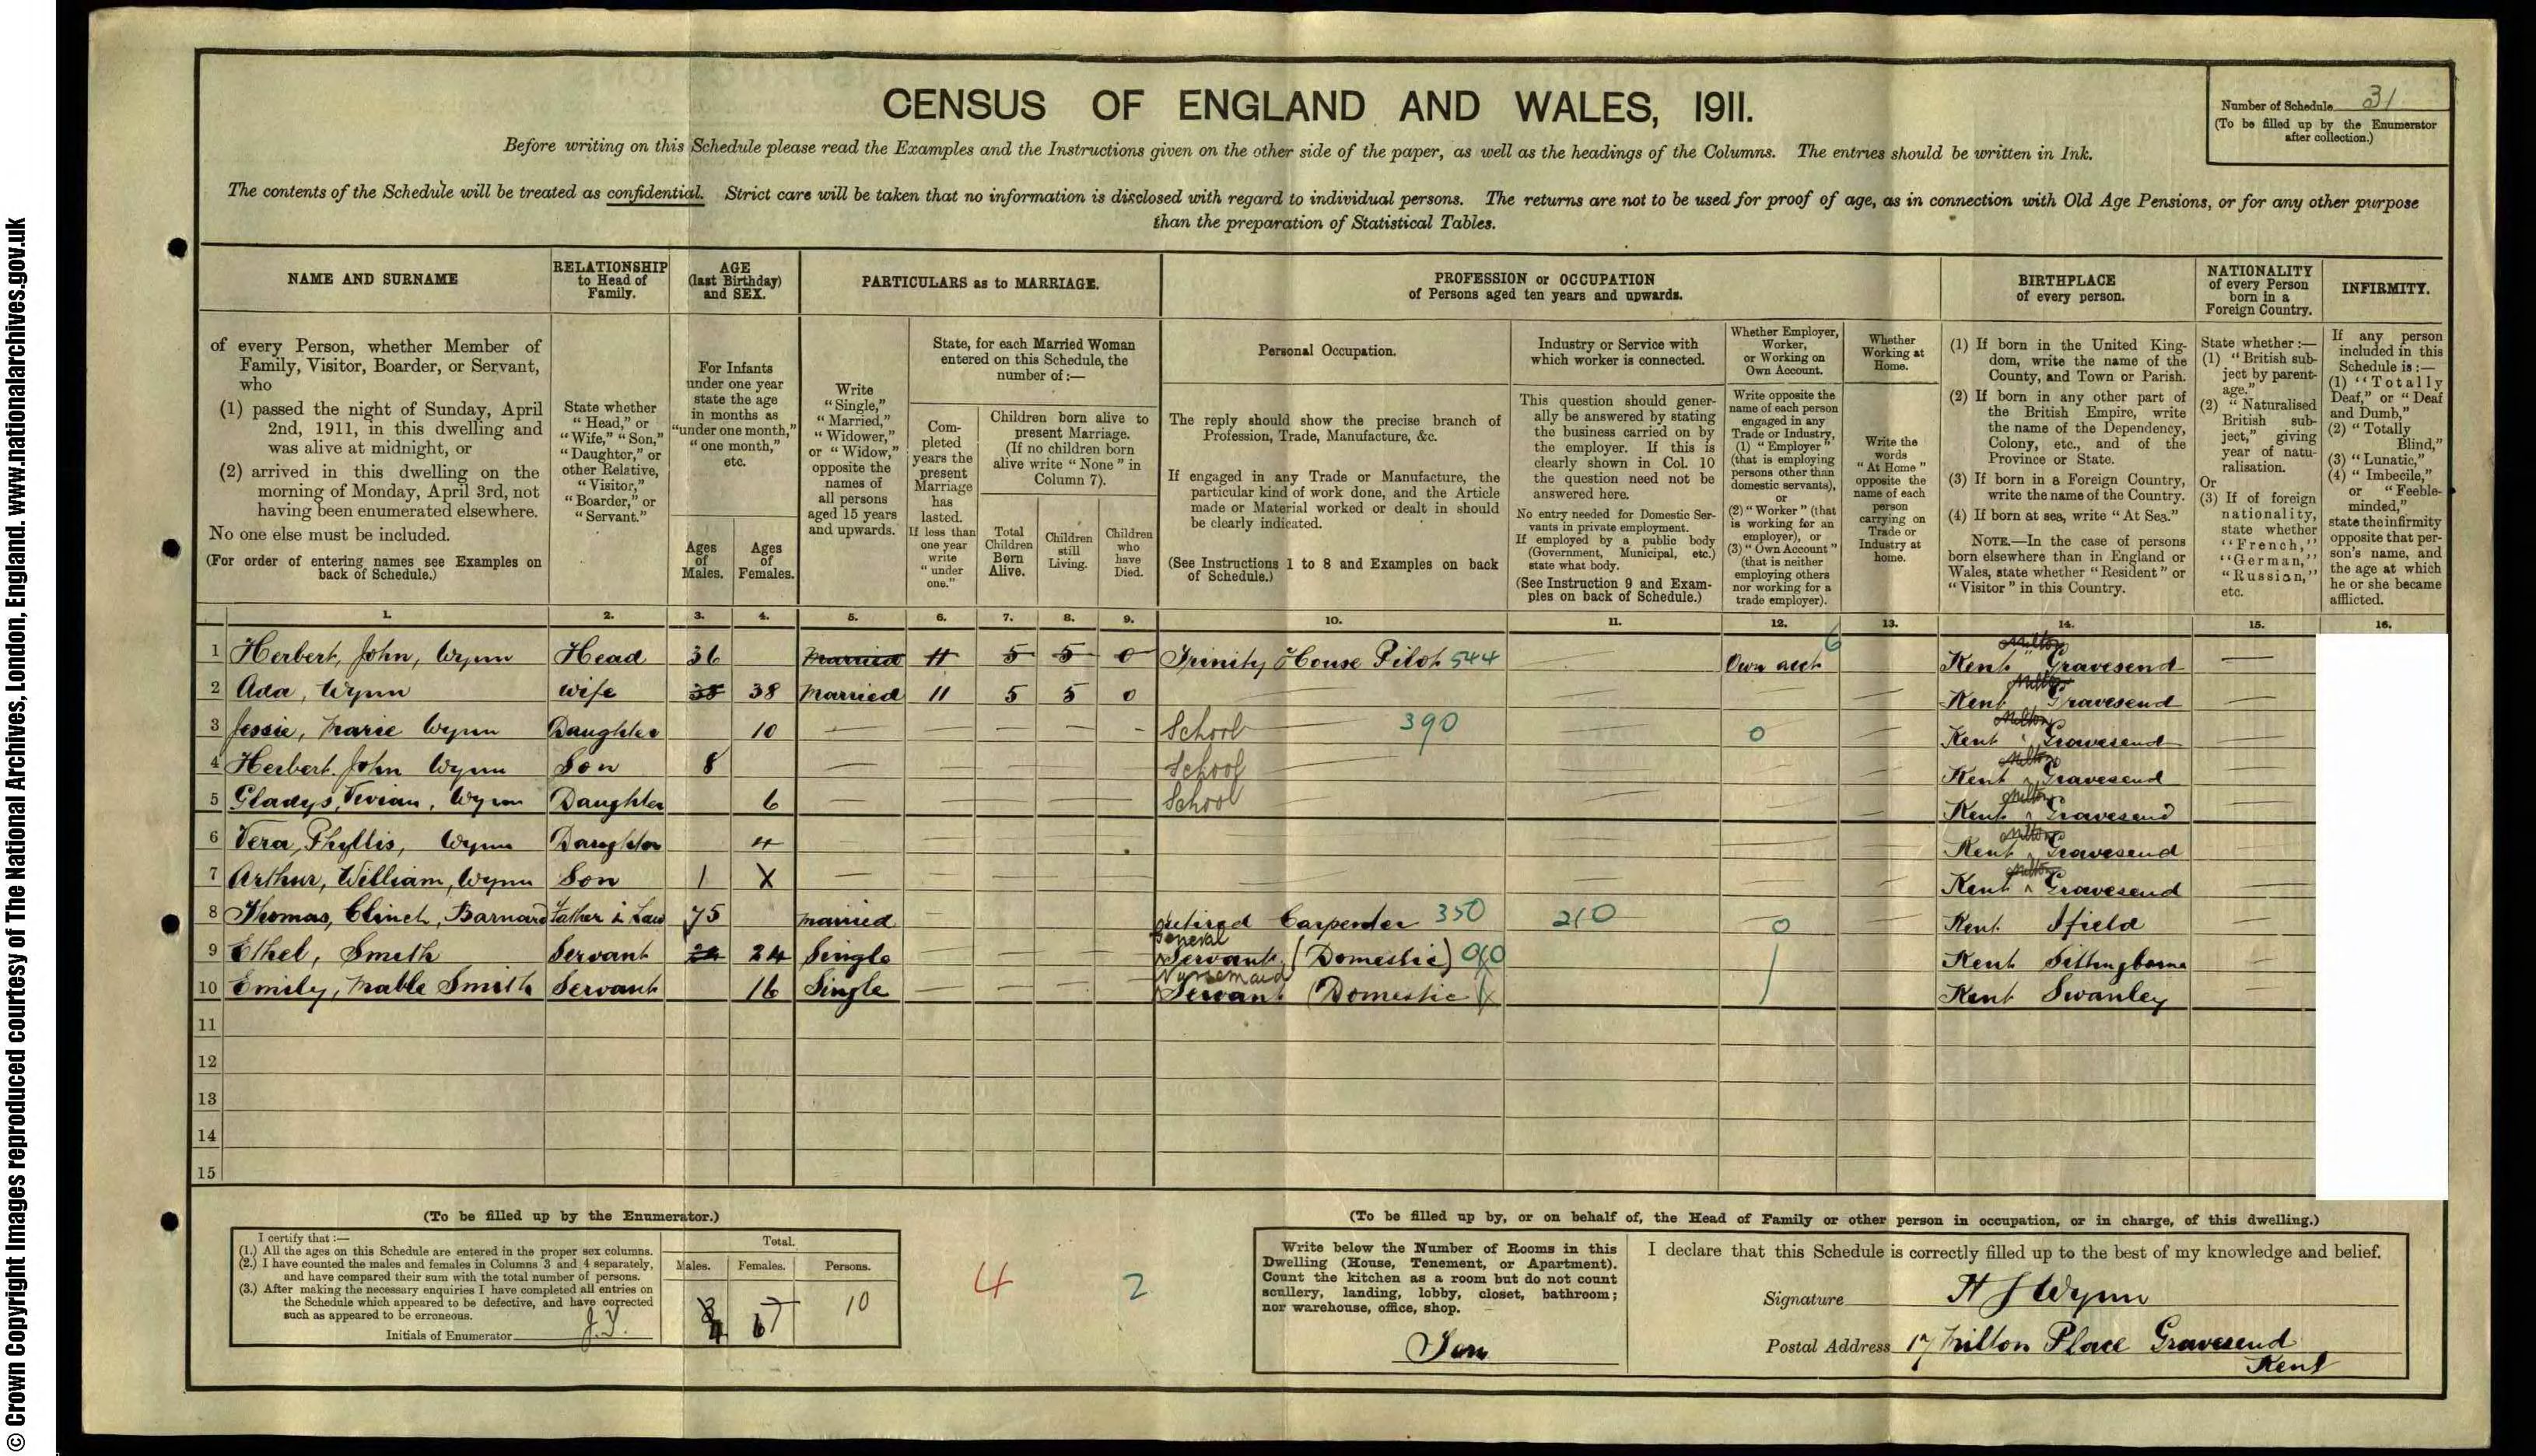 © Crown Copyright Images reproduced courtesy of The National Archives, London, England. www.nationalarchives.gov.uk
CENSUS OF ENGLAND AND WALES, 1911.
Number of Schedule 31
(To be filled up by the Enumerator after collection.)
Before writing on this Schedule please read the Examples and the Instructions given on the other side of the paper, as well as the headings of the Columns. The entries should be written in Ink.
The contents of the Schedule will be treated as confidential. Strict care will be taken that no information is disclosed with regard to individual persons. The returns are not to be used for proof of age, as in connection with Old Age Pensions, or for any other purpose
than the preparation of Statistical Tables.
NAME AND SURNAME
of every Person, whether Member of
Family, Visitor, Boarder, or Servant,
who
(1) passed the night of Sunday, April
2nd, 1911, in this dwelling and
was alive at midnight, or
(2) arrived in this dwelling on the
morning of Monday, April 3rd, not
having been enumerated elsewhere.
No one else must be included.
(For order of entering names see Examples on
back of Schedule.)
RELATIONSHIP
to Head of
Family.
State whether
"Head," or
"Wife," "Son,"
"Daughter," or
other Relative,
"Visitor,"
"Boarder," or
"Servant."
AGE
(last Birthday)
and SEX.
For Infants
under one year
state the age
in months as
"under one month,"
"one month,"
etc.
Ages
of
Males.
Ages
of
Females.
PARTICULARS as to MARRIAGE.
Write
"Single,"
"Married,"
"Widower,"
or "Widow,"
opposite the
names of
all persons
aged 15 years
and upwards.
State, for each Married Woman
entered on this Schedule, the
number of:—
Com-
pleted
years the
present
Marriage
has
lasted.
If less than
one year
write
"under
one."
Children born alive to
present Marriage.
(If no children born
alive write "None" in
Column 7).
Total
Children
Born
Alive.
Children
still
Living.
Children
who
have
Died.
PROFESSION or OCCUPATION
of Persons aged ten years and upwards.
Personal Occupation.
The reply should show the precise branch of
Profession, Trade, Manufacture, &c.
If engaged in any Trade or Manufacture, the
particular kind of work done, and the Article
made or Material worked or dealt in should
be clearly indicated.
(See Instructions 1 to 8 and Examples on back
of Schedule.)
Industry or Service with
which worker is connected.
This question should gener-
ally be answered by stating
the business carried on by
the employer. If this is
clearly shown in Col. 10
the question need not be
answered here.
No entry needed for Domestic Ser-
vants in private employment.
If employed by a public body
(Government, Municipal, etc.)
state what body.
(See Instruction 9 and Exam-
ples on back of Schedule.)
Whether Employer,
Worker,
or Working on
Own Account.
Write opposite the
name of each person
engaged in any
Trade or Industry,
(1) "Employer"
(that is employing
persons other than
domestic servants),
or
(2) "Worker" (that
is working for an
employer), or
(3) "Own Account"
(that is neither
employing others
nor working for a
trade employer).
Whether
Working at
Home.
Write the
words
"At Home"
opposite the
name of each
person
carrying on
Trade or
Industry at
home.
BIRTHPLACE
of every person.
(1) If born in the United King-
dom, write the name of the
County, and Town or Parish.
(2) If born in any other part of
the British Empire, write
the name of the Dependency,
Colony, etc., and of the
Province or State.
(3) If born in a Foreign Country,
write the name of the Country.
(4) If born at sea, write "At Sea."
NOTE.—In the case of persons
born elsewhere than in England or
Wales, state whether "Resident" or
"Visitor" in this Country.
NATIONALITY
of every Person
born in a
Foreign Country.
State whether:—
(1) "British sub-
ject by parent-
age."
(2) "Naturalised
British sub-
ject," giving
year of natu-
ralisation.
Or
(3) If of foreign
nationality,
state whether
"French,"
"German,"
"Russian,"
etc.
INFIRMITY.
If any person
included in this
Schedule is:—
(1) "Totally
Deaf," or "Deaf
and Dumb,"
(2) "Totally
Blind,"
(3) "Lunatic,"
(4) "Imbecile,"
or "Feeble-
minded,"
state the infirmity
opposite that per-
son's name, and
the age at which
he or she became
afflicted.
1. 2. 3. 4. 5. 6. 7. 8. 9. 10. 11. 12. 13. 14. 15. 16.
1 Herbert, John, Wynn Head 36 Married 11 5 5 0 Trinity House Pilot 544 Own acct 6 Kent Milton Gravesend
2 Ada, Wynn Wife 38 38 Married 11 5 5 0 Kent Milton Gravesend
3 Jessie, Marie Wynn Daughter 10 School 390 0 Kent Milton Gravesend
4 Herbert John Wynn Son 8 School Kent Milton Gravesend
5 Gladys, Vivian, Wynn Daughter 6 School Kent Milton Gravesend
6 Vera, Phyllis, Wynn Daughter 4 Kent Milton Gravesend
7 Arthur, William, Wynn Son 1 X Kent Milton Gravesend
8 Thomas, Clinch, Barnard Father in Law 75 Married retired Carpenter 350 210 0 Kent Ifield
9 Ethel, Smith Servant 24 24 Single General Servant (Domestic) Kent Sittingborne
10 Emily, Mable Smith Servant 16 Single Nursemaid Servant (Domestic) Kent Swanley
11
12
13
14
15
(To be filled up by the Enumerator.)
I certify that:—
(1.) All the ages on this Schedule are entered in the proper sex columns.
(2.) I have counted the males and females in Columns 3 and 4 separately,
and have compared their sum with the total number of persons.
(3.) After making the necessary enquiries I have completed all entries on
the Schedule which appeared to be defective, and have corrected
such as appeared to be erroneous.
Initials of Enumerator
Total.
Males. Females. Persons.
4 6 10
4 2
(To be filled up by, or on behalf of, the Head of Family or other person in occupation, or in charge, of this dwelling.)
Write below the Number of Rooms in this
Dwelling (House, Tenement, or Apartment).
Count the kitchen as a room but do not count
scullery, landing, lobby, closet, bathroom;
nor warehouse, office, shop.
Ten
I declare that this Schedule is correctly filled up to the best of my knowledge and belief.
Signature H J Wynn
Postal Address 17 Milton Place Gravesend
Kent